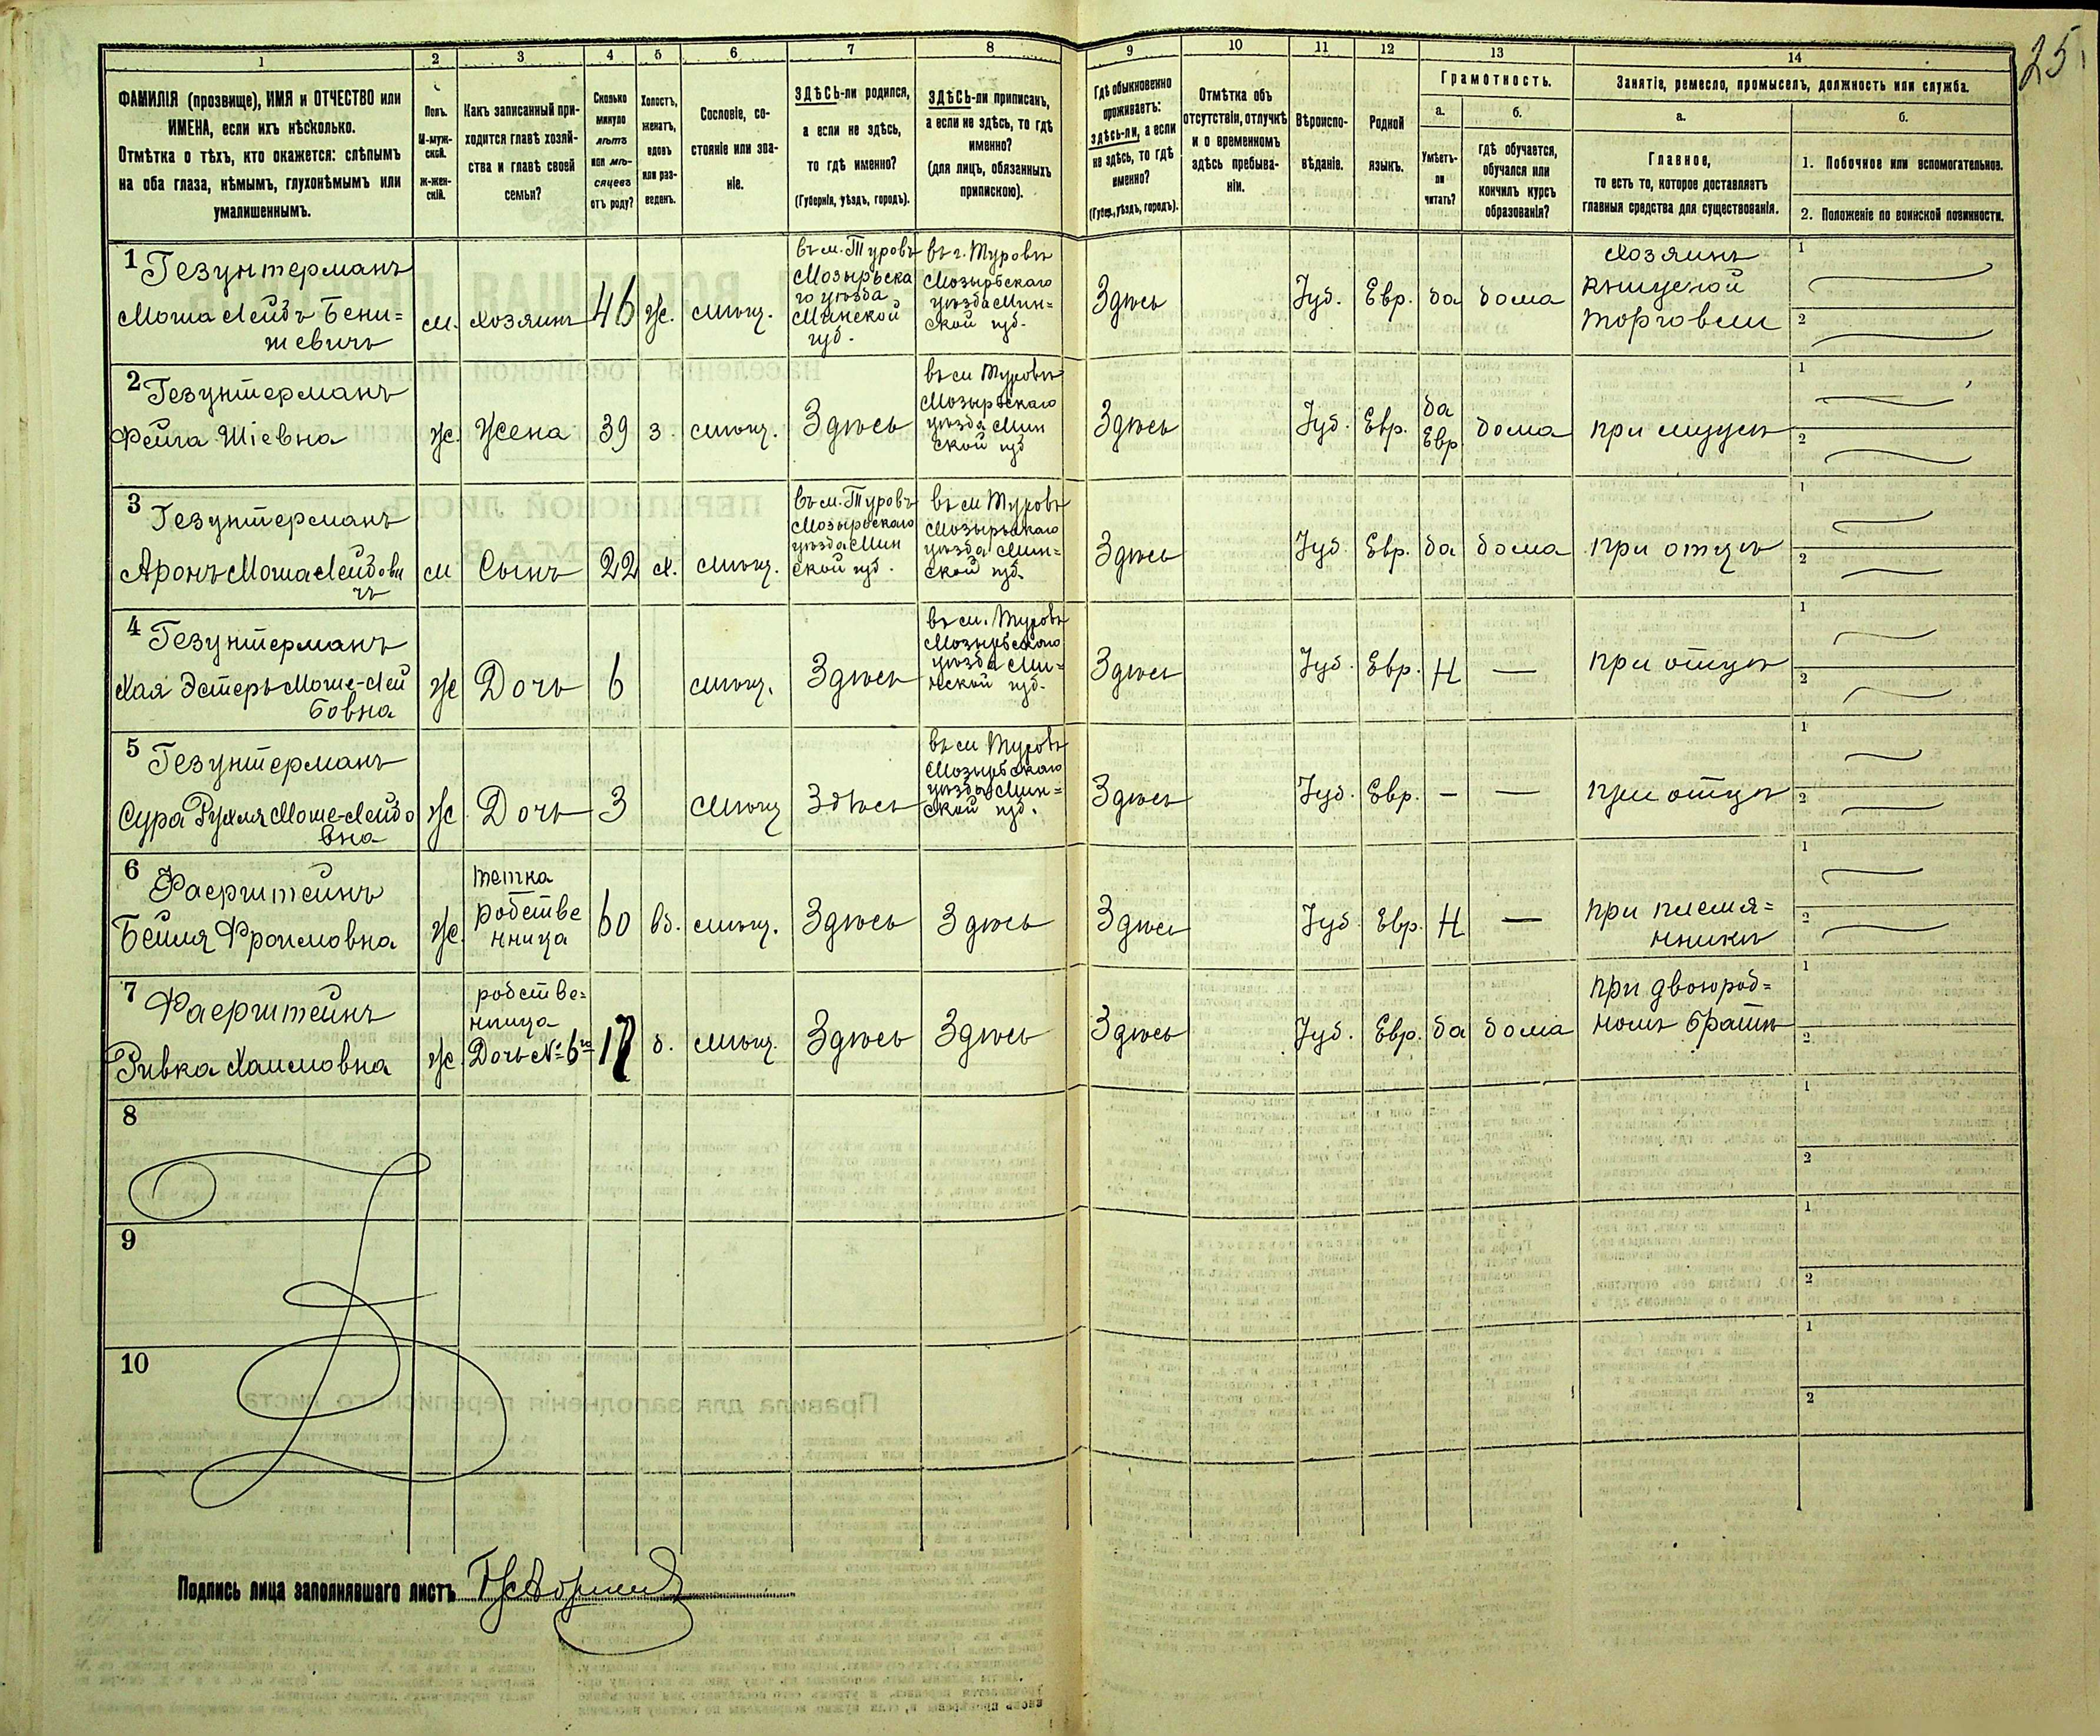 25
1 2 3 4 5 6 7 8 9 10 11 12 13 14
ФАМИЛІЯ (прозвище), ИМЯ и ОТЧЕСТВО или
ИМЕНА, если ихъ нѣсколько.
Отмѣтка о тѣхъ, кто окажется: слѣпымъ
на оба глаза, нѣмымъ, глухонѣмымъ или
умалишеннымъ.
Полъ.
М-муж-
ской.
ж-жен-
скій.
Какъ записанный при-
ходится главѣ хозяй-
ства и главѣ своей
семьи?
Сколько
минуло
лѣтъ
или мѣ-
сяцевъ
отъ роду?
Холостъ,
женатъ,
вдовъ
или раз-
веденъ.
Сословіе, со-
стояніе или зва-
ніе.
ЗДѢСЬ-ли родился,
а если не здѣсь,
то гдѣ именно?
(Губернія, уѣздъ, городъ).
ЗДѢСЬ-ли приписанъ,
а если не здѣсь, то гдѣ
именно?
(для лицъ, обязанныхъ
припискою).
Гдѣ обыкновенно
проживаетъ:
здѣсь-ли, а если
не здѣсь, то гдѣ
именно?
(Губер., уѣздъ, городъ).
Отмѣтка объ
отсутствіи, отлучкѣ
и о временномъ
здѣсь пребыва-
ніи.
Вѣроиспо-
вѣданіе.
Родной
языкъ.
Грамотность.
а.
Умѣетъ-
ли
читать?
б.
гдѣ обучается,
обучался или
кончилъ курсъ
образованія?
Занятіе, ремесло, промыселъ, должность или служба.
а.
Главное,
то есть то, которое доставляетъ
главныя средства для существованія.
б.
1. Побочное или вспомогательное.
2. Положеніе по воинской повинности.
1 Гезунтерманъ
Моша Лейбъ Бени=
шевичъ
м.
Хозяинъ
46
Ж.
мѣщ.
въ м. Туровъ
Мозырьска
го уѣзда
Минской
губ.
въ г. Туровъ
Мозырьскаго
уѣзда Мин=
ской губ.
Здѣсь
Іуд.
Евр.
да
дома
Хозяинъ
торговли
1
2
2 Гезунтерманъ
Фейга Шіевна
Ж.
Жена
39
з.
мѣщ.
Здѣсь
въ м Туровъ
Мозырьскаго
уѣзда Мин
ской губ
Здѣсь
Іуд.
Евр.
да
Евр
дома
при мужѣ
1
2
3 Гезунтерманъ
Аронъ Моша Лейбови
чъ
м
Сынъ
22
х.
мѣщ.
въ м. Туровъ
Мозырьскаго
уѣзда Мин
ской губ.
въ м Туровъ
Мозырьскаго
уѣзда Мин=
ской губ.
Здѣсь
Іуд.
Евр.
да
дома
при отцѣ
1
2
4 Гезунтерманъ
Хая Эстеръ Моше-Лей
бовна
Ж
Дочь
6
мѣщ.
Здѣсь
въ м. Туровъ
Мозырьскаго
уѣзда Ми=
нской губ.
Здѣсь
Іуд.
Евр.
Н
—
при отцѣ
1
2
5 Гезунтерманъ
Сура Рухля Моше-Лейбо
вна
Ж
Дочь
3
мѣщ
Здѣсь
въ м Туровъ
Мозырьскаго
уѣзда Мин=
ской губ.
Здѣсь
Іуд.
Евр.
—
—
при отцѣ
1
2
6 Фаерштейнъ
Бейля Фроимовна
Ж.
тетка
родстве
нница
60
вд.
мѣщ.
Здѣсь
Здѣсь
Здѣсь
Іуд
Евр.
Н
—
при племя=
нникѣ
1
2
7 Фаерштейнъ
Ривка Хаимовна
Ж.
родстве=
нница
Дочь № 6го
17
д.
мѣщ.
Здѣсь
Здѣсь
Здѣсь
Іуд.
Евр.
да
дома
при двоюрод=
номъ братѣ
1
2
8
1
2
9
1
2
10
1
2
Подпись лица заполнявшаго листъ